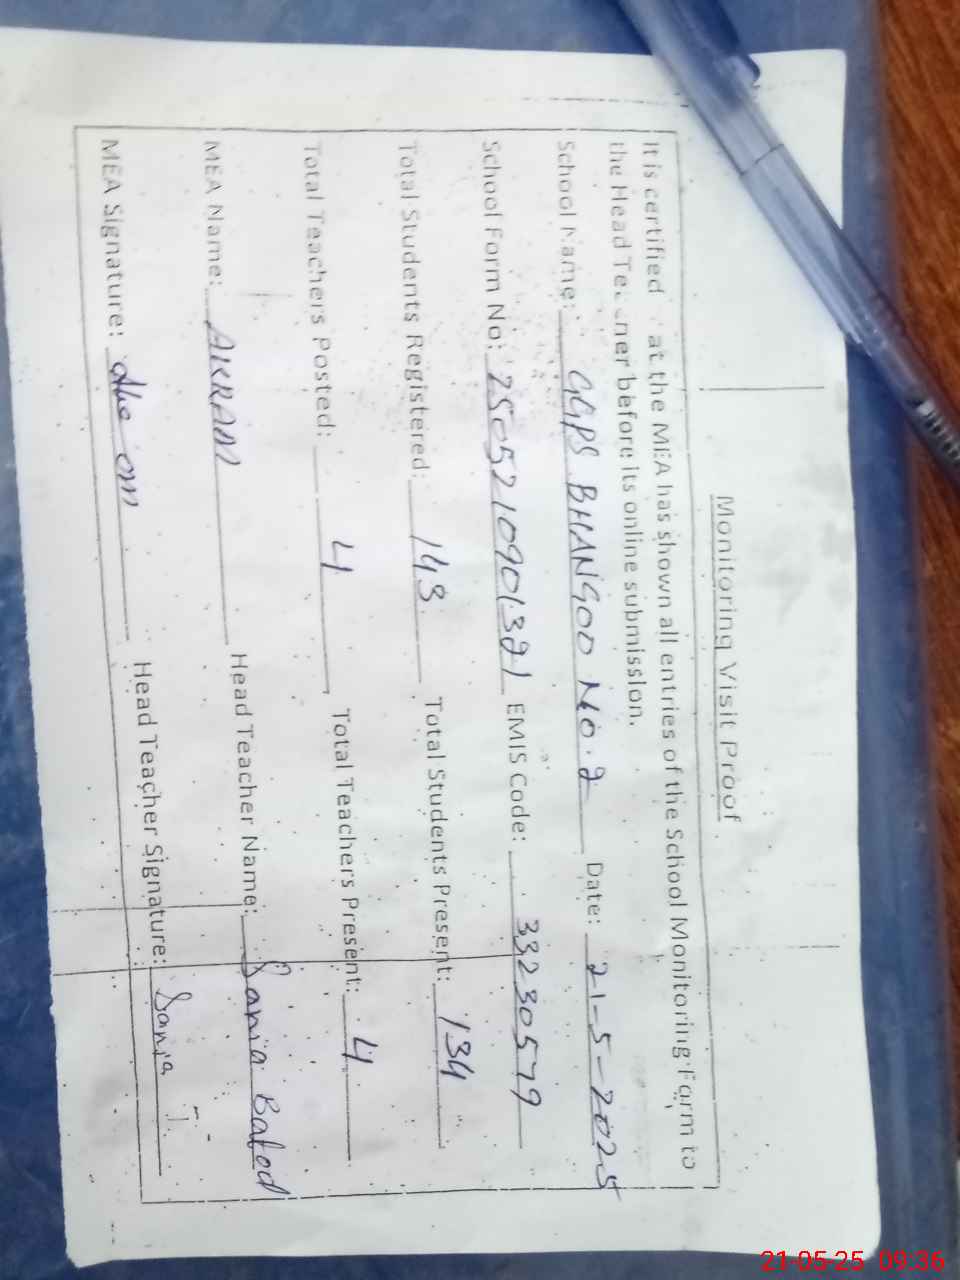 Monitoring Visit Proof
It is certified at the MEA has shown all entries of the School Monitoring Form to
the Head Teacher before its online submission.
School Name: GGPS BHANGOO No.2 Date: 21-5-2025
School Form No: 2505210901321 EMIS Code: 33230579
Total Students Registered: 143 Total Students Present: 134
Total Teachers Posted: 4 Total Teachers Present: 4
MEA Name: AKRAM Head Teacher Name: Sania Batool
MEA Signature: Head Teacher Signature: Sania
21-05-25 09:36